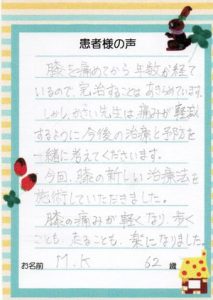 患者様の声
膝を痛めてから年数が経て
いるので、完治することはあきらめています。
しかし、かさい先生は痛みが軽減
するように今後の治療と予防を
一緒に考えてくださいます。
今回、膝の新しい治療法を
施術していただきました。
膝の痛みが軽くなり歩く
ことも走ることも、楽になりました。
お名前 M.K 62 歳